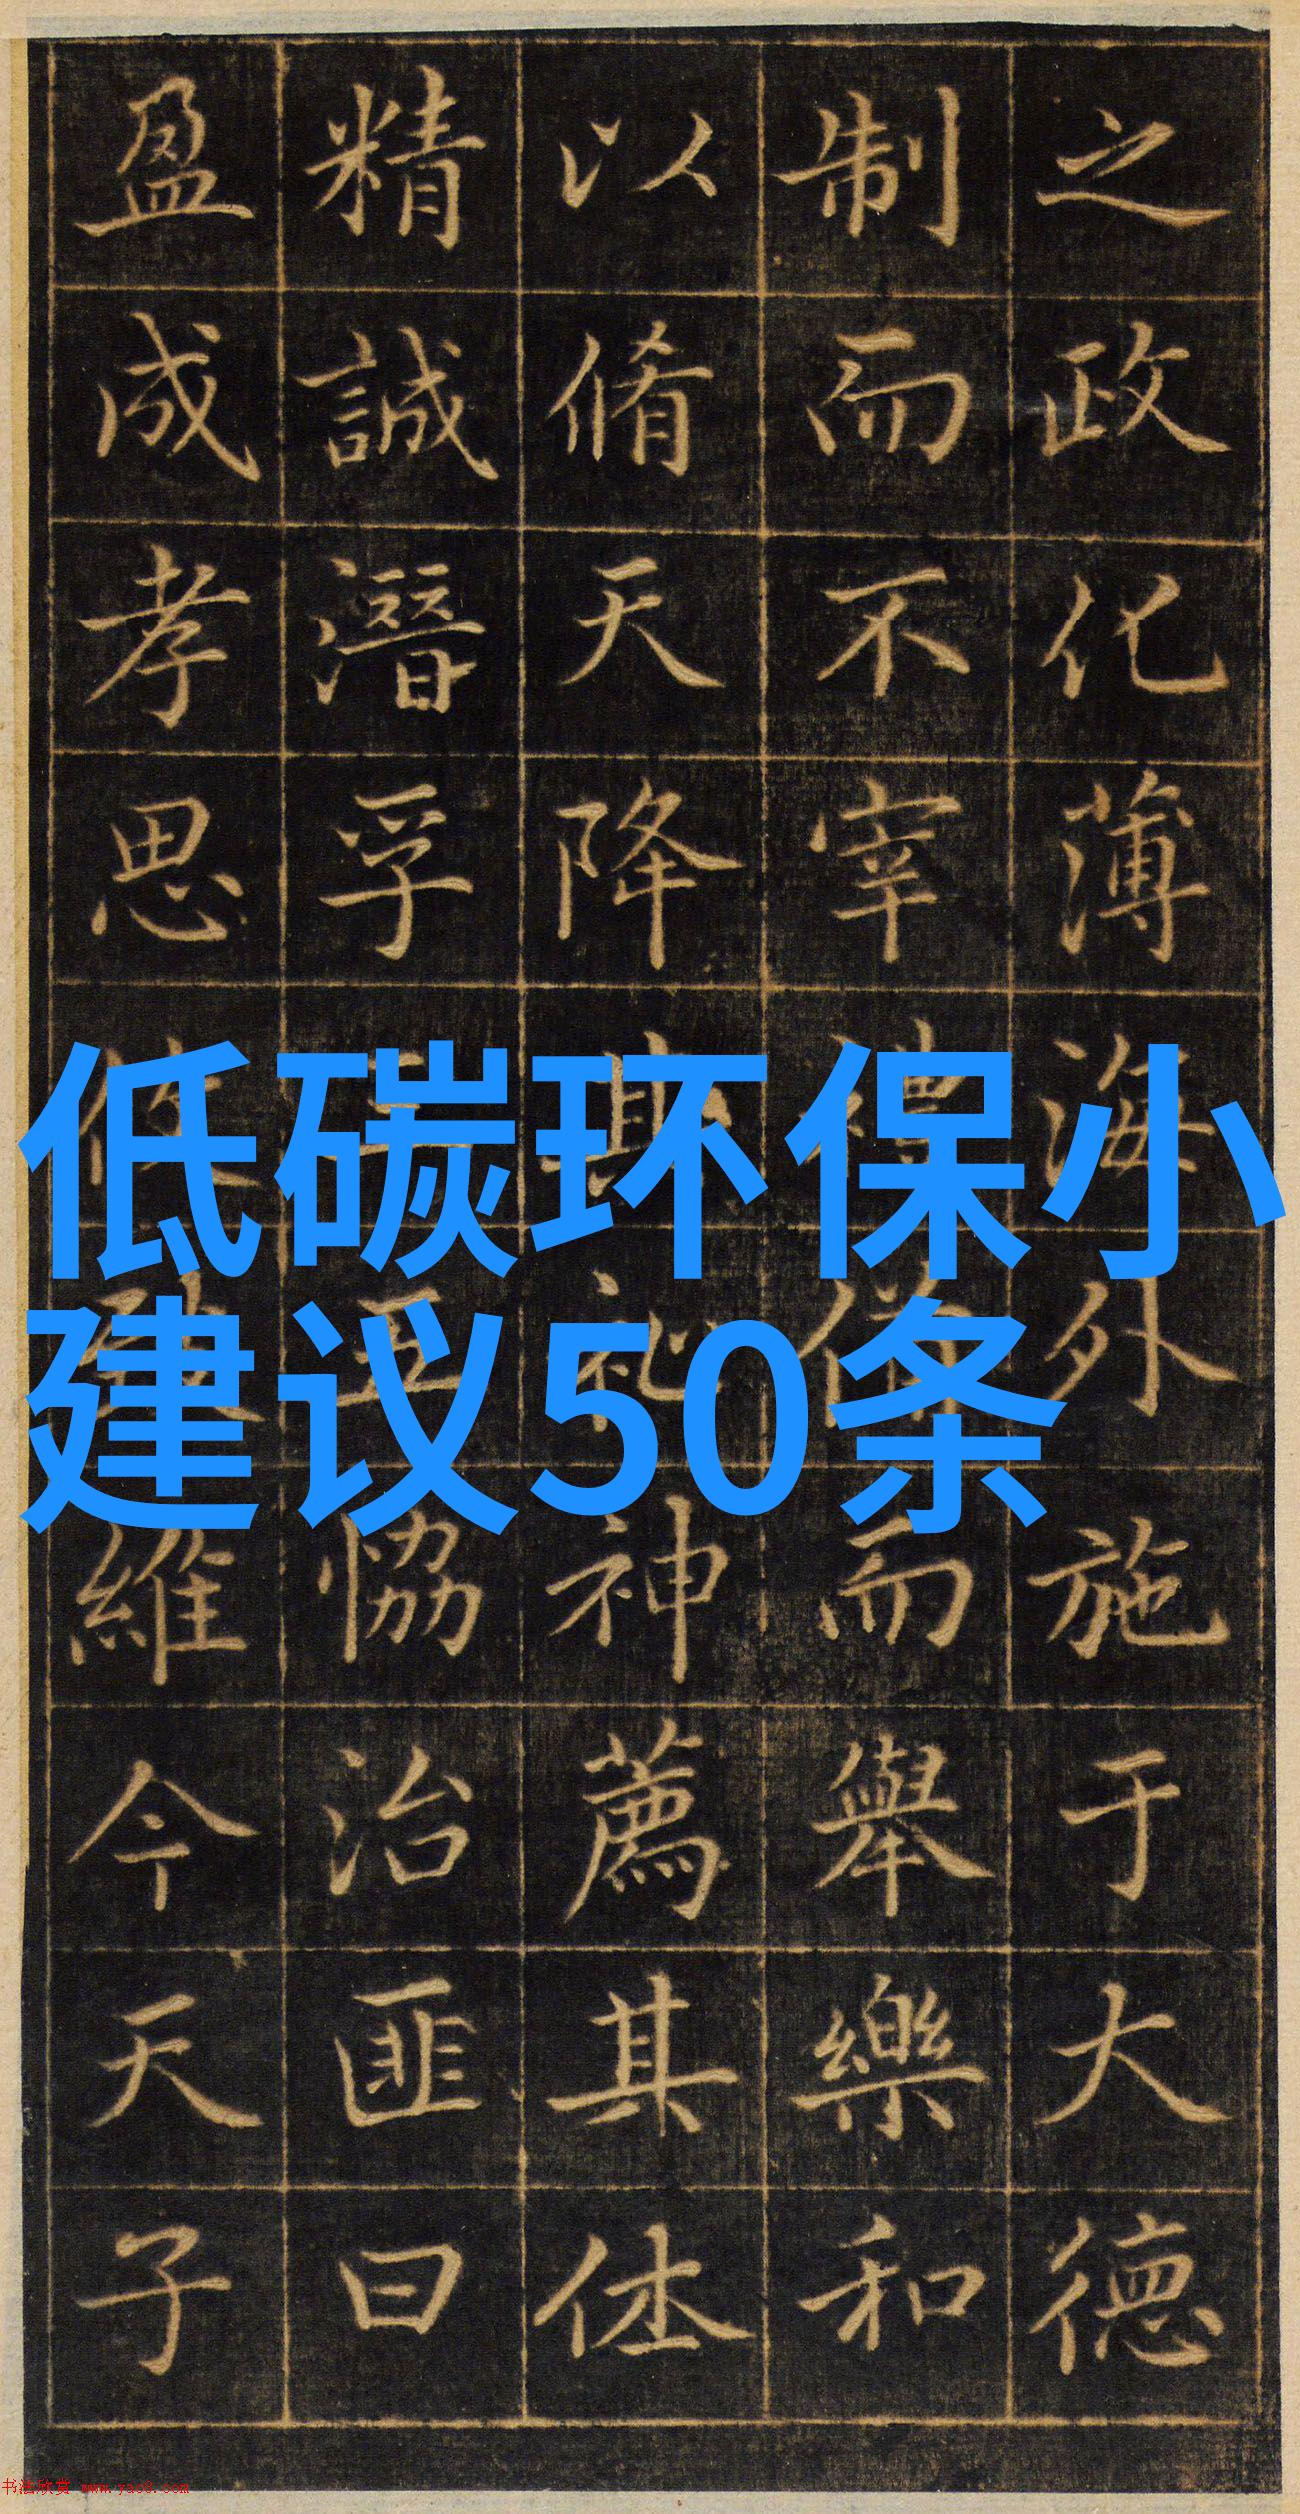 之政化薄海外施于大德
制而不宰禮備而舉樂和
以脩天降其祉神薦其休
精誠潛孚恊治匪曰
盈成孝思維今天子
低碳环保小
建议50条
书法欣赏 www.yac8.com